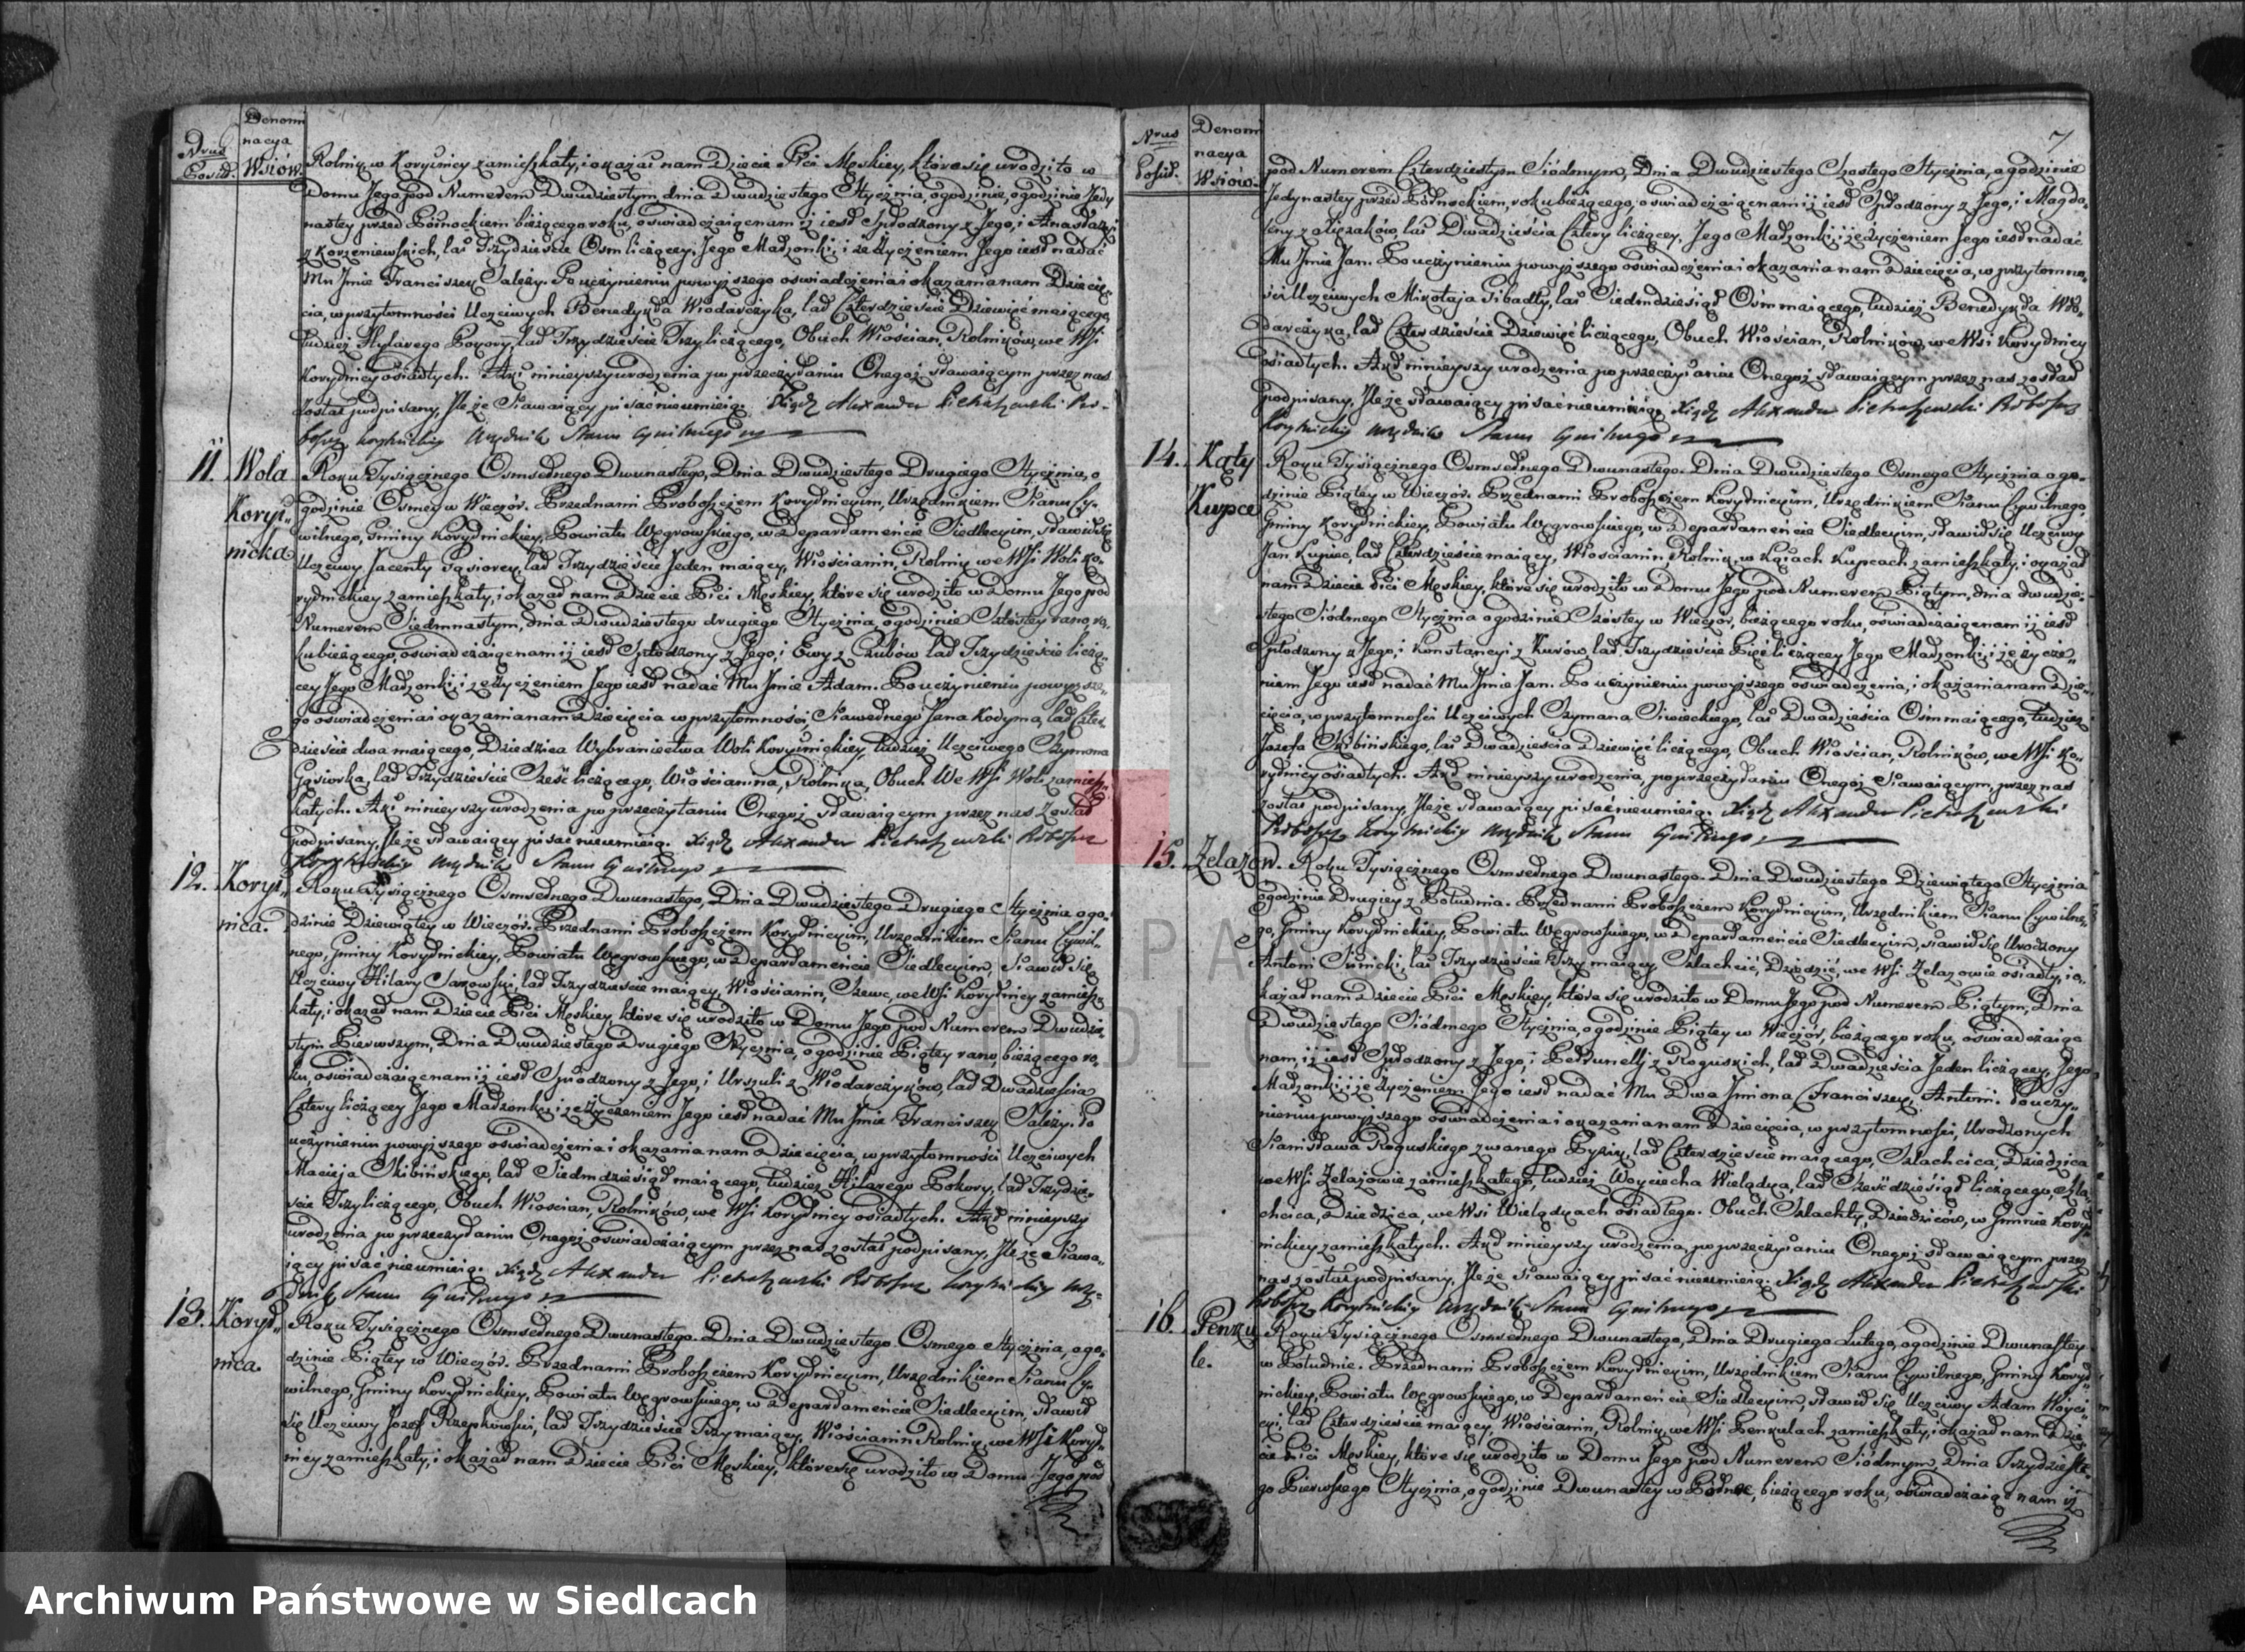 Nrus Posid.
Denominacya Wsiów
Rolnik, w Korytnicy zamieszkały, i okazał nam Dziecię Płci Męskiey, które się urodziło w
Domu Jego pod Numerem Dwudziestym, dnia Dwudziestego Stycznia, ogodzinie, ogodzinie Jedy
nastey przed Północkiem bieżącego roku, oswiadczaiąc nam iż iest Spłodzony z Jego, i Anastazyi
z Korzeniewskich, lat Trzydzieści Osm liczącey, Jego Małżonki, i że życzeniem Jego iest nadać
Mu Jmie Franciszek Salezy. Po uczynieniu powyższego oswiadczenia i okazania nam Dziecię„
cia, w przytomności Uczciwych Benedykta Włodarczyka, lat Czterdzieście Dziewięć maiącego,
tudzież Hylarego Pokory, lat Trzydzieście Trzy liczącego, Obuch Włościan, Rolników, we Wsi
Korytnicy osiadłych. Akt ninieyszy urodzenia po przeczytaniu Onegoż stawaiącym przez nas
został podpisany, Jle że Stawaiący pisać nieumieią. Xiądz Alexander Pietraszewski Pro-
boszcz Korytnicki Urzędnik Stanu Cywilnego
11. Wola Koryt„nicka
Roku Tysiącznego Osmsetnego Dwunastego, Dnia Dwudziestego Drugiego Stycznia, o
godzinie Osmey w Wieczór. Przednami Proboszczem Korytnickim, Urzędnikiem Stanu Cy„
wilnego, Gminy Korytnickiey, Powiatu Węgrowskiego, w Departamencie Siedleckim, stawił się
Uczciwy Jacenty Gąsiorek, lat Trzydzieście Jeden maiący, Włościanin, Rolnik we Wsi Woli Ko„
rytnickiey zamieszkały, i okazał nam Dziecię Płci Męskiey, które się urodziło w Domu Jego pod
Numerem Siedmnastym, dnia Dwudziestego drugiego Stycznia, ogodzinie Szostey rano, ro„
ku bieżącego, oswiadczaiąc nam iż iest Spłodzony z Jego, i Ewy z Zubów lat Trzydzieście liczą„
cey Jego Małżonki, i że życzeniem Jego iest nadać Mu Jmie Adam. Po uczynieniu powyższe„
go oswiadczenia i okazania nam Dziecięcia w przytomności Sławetnego Jana Kodyma, lat Czter„
dzieście dwa maiącego, Dziedzica Wybraniectwa Woli Korytnickiey, tudzież Uczciwego Szymona
Gąsiorka, lat Trzydzieście Sześć liczącego, Włościanina, Rolnika, Obuch We Wsi Woli zamiesz„
kałych. Akt ninieyszy urodzenia po przeczytaniu Onegoż stawaiącym przez nas Został
podpisany, Jle że stawaiący pisać nieumieią. Xiądz Alexander Pietraszewski Proboszcz
Korytnicki Urzędnik Stanu Cywilnego
12. Koryt„nica.
Roku Tysiącznego Osmsetnego Dwunastego, Dnia Dwudziestego Drugiego Stycznia ogo„
dzinie Dziewiątey w Wieczór. Przednami Proboszczem Korytnickim, Urzędnikiem Stanu Cywil„
nego, Gminy Korytnickiey, Powiatu Węgrowskiego, w Departamencie Siedleckim, Stawił Się
Uczciwy Hilary Sakowski, lat Trzydzieście maiący, Włościanin, Szewc, we Wsi Korytnicy zamiesz„
kały, i okazał nam Dziecię Płci Męskiey, które się urodziło w Domu Jego pod Numerem Dwudzie„
stym Pierwszym, Dnia Dwudziestego Drugiego Stycznia, ogodzinie Piątey rano, bieżącego ro„
ku, oswiadczaiąc nam iż iest Spłodzony z Jego, i Urszuli z Włodarczyków, lat Dwadzieścia
Cztery liczącey Jego Małżonki, i że życzeniem Jego iest nadać Mu Jmie Franciszek Salezy. Po
uczynieniu powyższego oswiadczenia i okazania nam Dziecięcia, w przytomności Uczciwych
Macieja Skibińskiego, lat Siedmdziesiąt maiącego, tudzież Hilarego Pokory, lat Trzydzie„
ście Trzy liczącego, Obuch Włościan, Rolników, we Wsi Korytnicy osiadłych. Akt ninieyszy
urodzenia po przeczytaniu Onegoż oswiadczaiącym przez nas został podpisany, Jle że Stawa„
iący pisać nieumieią. Xiądz Alexander Pietraszewski Proboszcz Korytnicki Urzę„
dnik Stanu Cywilnego
13. Koryt„nica.
Roku Tysiącznego Osmsetnego Dwunastego. Dnia Dwudziestego Osmego Stycznia, ogo„
dzinie Piątey w Wieczór. Przednami Proboszczem Korytnickim, Urzędnikiem Stanu Cy„
wilnego, Gminy Korytnickiey, Powiatu Węgrowskiego, w Departamencie Siedleckim, stawił
się Uczciwy Józef Rzepkowski, lat Trzydzieście Trzy maiący, Włościanin Rolnik, we Wsi Koryt„
nicy zamieszkały, i okazał nam Dziecię Płci Męskiey, które się urodziło w Domu Jego pod
7
Nrus Posid.
Denominacya Wsiów.
pod Numerem Czterdziestym Siódmym, Dnia Dwudziestego Szostego Stycznia, ogodzinie
Jedynastey przed Północkiem, roku bieżącego, oswiadczaiąc nam iż iest Spłodzony z Jego, i Magda„
leny z Slężaków, lat Dwadzieścia Cztery liczącey, Jego Małżonki, i że życzeniem Jego iest nadać
Mu Jmie Jan. Po uczynieniu powyższego oswiadczenia i okazania nam Dziecięcia, w przytomno„
ści Uczciwych Mikołaja Sibadły, lat Siedmdziesiąt Osm maiącego, tudzież Benedykta Wło„
darczyka, lat Czterdzieście Dziewięć liczącego, Obuch Włościan, Rolników, we Wsi Korytnicy
osiadłych. Akt ninieyszy urodzenia po przeczytaniu Onegoż stawaiącym przez nas został
podpisany, Jle że stawaiący pisać nieumieią. Xiądz Alexander Pietraszewski Proboszcz
Korytnicki Urzędnik Stanu Cywilnego
14. Kąty Kupce
Roku Tysiącznego Osmsetnego Dwunastego. Dnia Dwudziestego Osmego Stycznia ogo„
dzinie Piątey w Wieczór. Przednami Proboszczem Korytnickim, Urzędnikiem Stanu Cywilnego
Gminy Korytnickiey, Powiatu Węgrowskiego, w Departamencie Siedleckim, stawił się Uczciwy
Jan Kupiec, lat Czterdzieście maiący, Włościanin, Rolnik, w Kątach Kupcach zamieszkały, i okazał
nam Dziecię Płci Męskiey, które się urodziło w Domu Jego pod Numerem Piątym, dnia dwudzie„
stego Siódmego Stycznia ogodzinie Szóstey w Wieczór, bieżącego roku, oswiadczaiąc nam iż iest
Spłodzony z Jego, i Konstancyi z Kurów, lat Trzydzieście Pięć liczącey Jego Małżonki, i że życze„
niem Jego iest nadać Mu Jmie Jan. Po uczynieniu powyższego oswiadczenia, i okazania nam Dzie„
cięcia, w przytomności Uczciwych Szymana Siwieckiego, lat Dwadzieścia Osm maiącego, tudzież
Józefa Skibińskiego, lat Dwadzieścia Dziewięć liczącego, Obuch Włościan, Rolników, we Wsi Ko„
rytnicy osiadłych. Akt ninieyszy urodzenia, po przeczytaniu Onegoż Stawaiącym, przez nas
został podpisany, Jle że stawaiący pisać nieumieią. Xiądz Alexander Pietraszewski
Proboszcz Korytnicki Urzędnik Stanu Cywilnego
15. Zelazów.
Roku Tysiącznego Osmsetnego Dwunastego. Dnia Dwudziestego Dziewiątego Stycznia
ogodzinie Drugiey z Południa. Przednami Proboszczem Korytnickim, Urzędnikiem Stanu Cywilne„
go, Gminy Korytnickiey, Powiatu Węgrowskiego, w Departamencie Siedleckim, stawił się Urodzony
Antoni Sinicki, lat Trzydzieście Trzy maiący Szlachcic, Dziedzic, we Wsi Zelazowie osiadły, i o„
kazał nam Dziecię Płci Męskiey, które się urodziło w Domu Jego pod Numerem Piątym, Dnia
Dwudziestego Siódmego Stycznia, ogodzinie Piątey w Wieczór, bieżącego roku, oswiadczaiąc
nam, iż iest Spłodzony z Jego, i Petrunelli z Roguskich, lat Dwadzieścia Jeden liczącey, Jego
Małżonki, i że życzeniem Jego iest nadać Mu Dwa Jmiona Franciszek, Antoni. Po uczy„
nieniu powyższego oswiadczenia i okazania nam Dziecięcia, w przytomności, Urodzonych
Stanisława Roguskiego zwanego Byziy, lat Czterdzieście maiącego, Szlachcica, Dziedzica
we Wsi Zelazowie zamieszkałego, tudzież Woyciecha Wielądka, lat Sześćdziesiąt liczącego, Szla„
chcica, Dziedzica, we Wsi Wielądkach osiadłego. Obuch Szlachty, Dziedziców, w Gminie Koryt„
nickiey zamieszkałych. Akt ninieyszy urodzenia, po przeczytaniu Onegoż stawaiącym przez
nas został podpisany, Jle że stawaiący pisać nieumieią. Xiądz Alexander Pietraszewski
Proboszcz Korytnicki Urzędnik Stanu Cywilnego
16. Penxule.
Roku Tysiącznego Osmsetnego Dwunastego, Dnia Drugiego Lutego, ogodzinie Dwunastey
w Południe. Przednami Proboszczem Korytnickim, Urzędnikiem Stanu Cywilnego, Gminy Koryt„
nickiey, Powiatu Węgrowskiego, w Departamencie Siedleckim, stawił się Uczciwy Adam Woyci„
cki, lat Czterdzieście maiący, Włościanin, Rolnik, we Wsi Penxulach zamieszkały, i okazał nam Dzie„
cię Płci Męskiey, które się urodziło w Domu Jego pod Numerem Siódmym, Dnia Trzydzieste„
go Pierwszego Stycznia, ogodzinie Dwunastey w Północ, bieżącego roku, oswiadczaiąc nam iż
Archiwum Państwowe w Siedlcach